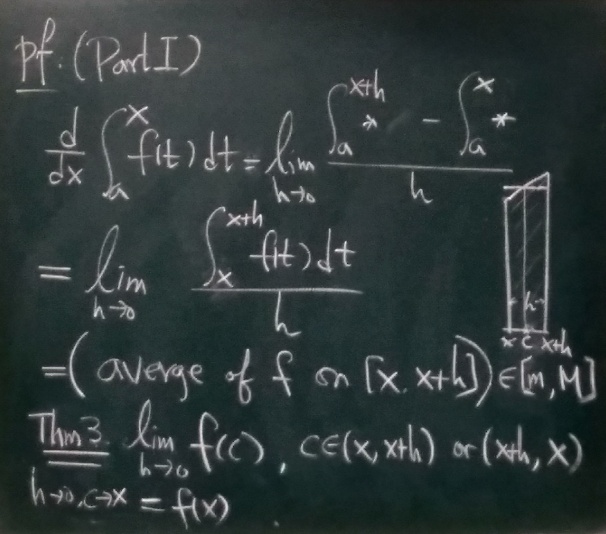 pf. (Part I)
d/dx ∫_a^x f(t) dt = lim_{h→0} (∫_a^{x+h} * - ∫_a^x *)/h
= lim_{h→0} (∫_x^{x+h} f(t) dt)/h
h
x c x+h
= (averge of f on [x. x+h]) ∈ [m, M]
Thm 3. lim_{h→0} f(c), c∈(x, x+h) or (x+h, x)
h→0, c→x = f(x)